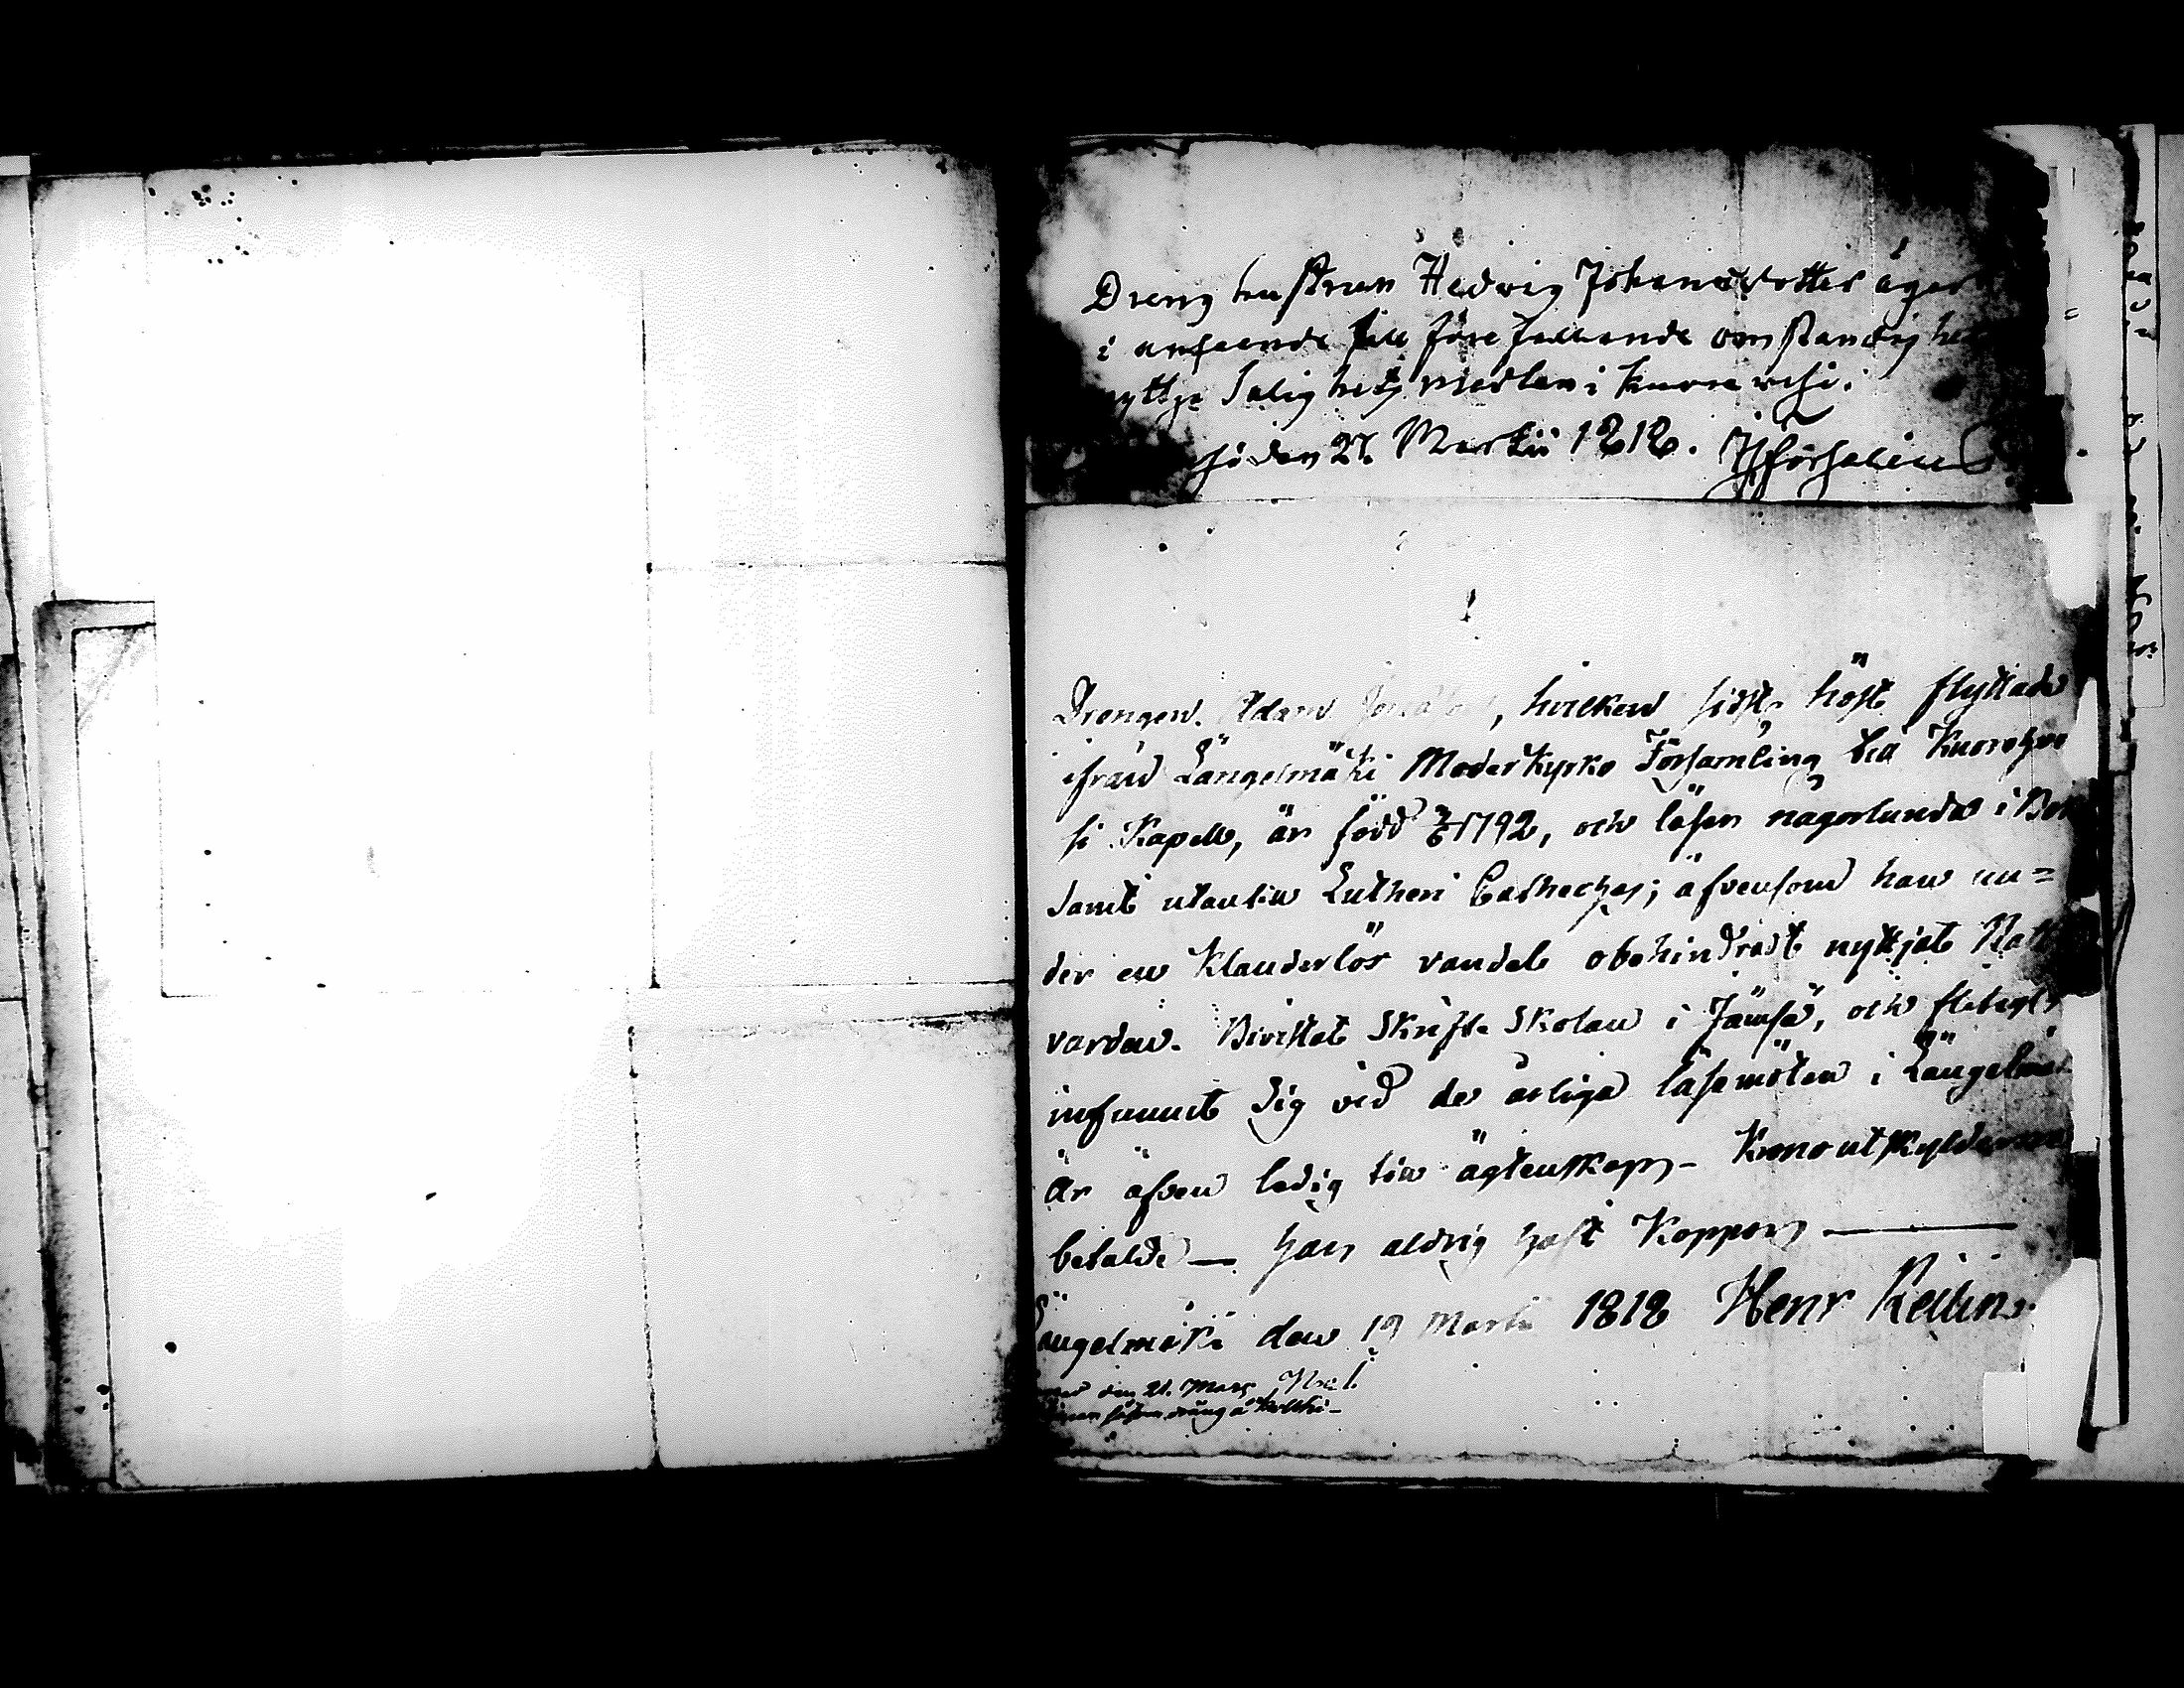 Dreng hustrun Hedwig Johansdotter äger
i anseende till förefallande omständighet
nyttja Salighets medlen i Kuorewesi.
den 27. Martii 1818.
Drengen Adam, hvilken sidste höst flyttade
ifrån Längelmäki Moderkyrko Församling till Kuorewe
si Kapell, är född 1792, och läser någorlunda i Bok
samt utantill Lutheri Catheches; äfvensom han un=
der en klanderlös vandel obehindradt nyttjat Natt
varden. Bivistat Skrifte Skolan i Jämsä, och flitigt
infunnit Sig vid de årliga läsemöten i Längelmä
Är äfven ledig till ägtenskap - Kronoutskylderna
betalde — han aldrig haft Koppor —
Längelmäki den 19 Martii 1818 Henr Rellin
den 21. Mars
såsom dräng å